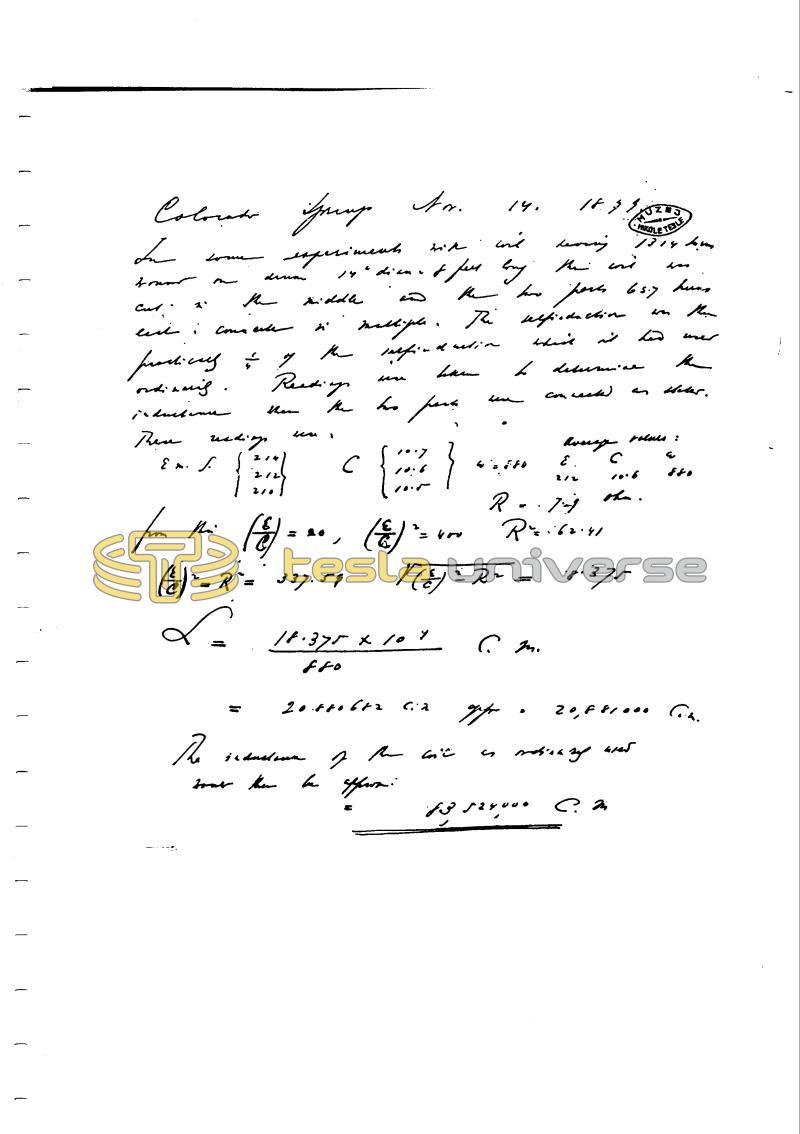 Colorado Springs Nov. 14. 1899
MUZEJ NIKOLE TESLE
In some experiments with coil having 1314 turns
wound on drum 14" diam. 8 feet long this coil was
cut in the middle and the two parts 657 turns
each connected in multiple. The selfinduction was then
practically 1/4 of the selfinduction which it had used
ordinarily. Readings were taken to determine the
inductance when the two parts were connected as stated.
These readings were: Average values:
E.m.f. { 214 212 210 } C { 10.7 10.6 10.5 } ω = 880 E C ω
212 10.6 880
R = 7.9 ohm.
from this (E/C) = 20, (E/C)² = 400 R² = 62.41
tesla universe
(E/C)² - R² = 337.59 √(E/C)² - R² = 18.375
L = 18.375 x 10⁹ / 880 C.m.
= 20.880682 C.m. appr. = 20,881,000 C.m.
The inductance of the coil as ordinarily used
would then be approx:
= 83,524,000 C.m